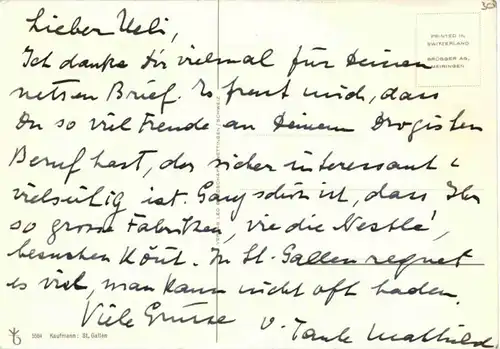 Lieber Ueli,
PRINTED IN
SWITZERLAND
BRÜGGER AG,
MEIRINGEN
Ich danke Dir vielmal für Deinen
netten Brief. Es freut mich, dass
Du so viel Freude an Deinem Drogisten
Beruf hast, der sicher interessant &
vielseitig ist. Ganz schön ist, dass Ihr
so grosse Fabriken, wie die Nestlé,
besuchen könnt. In St. Gallen regnet
es viel, man kann nicht oft baden.
Viele Grüsse
v. Tante Mathild
5594 Kaufmann: St. Gallen